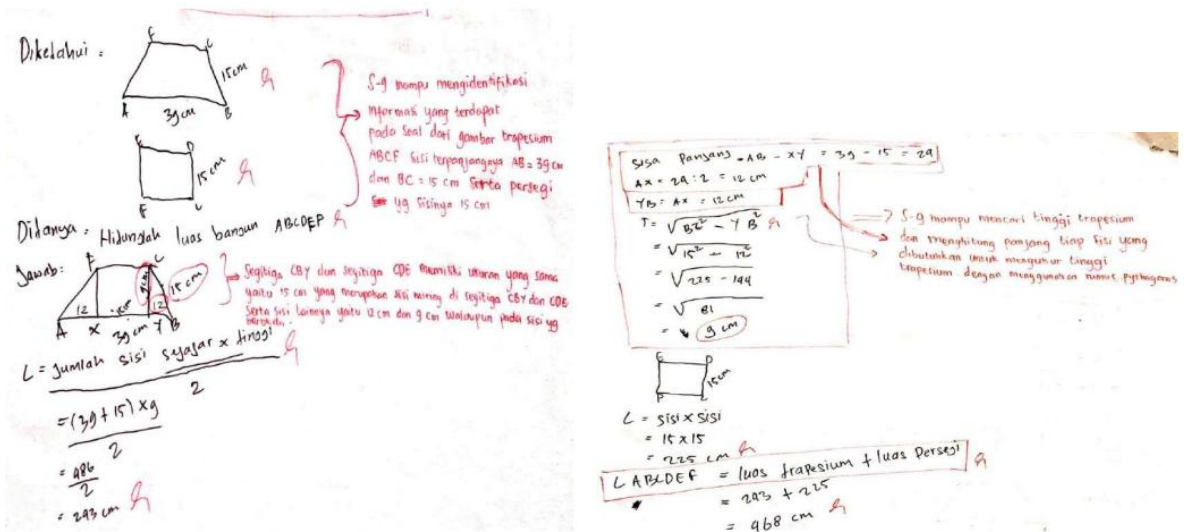 Diketahui :
F C
15 cm
A B
39 cm
E D
15 cm
F C
S-9 mampu mengidentifikasi
informasi yang terdapat
pada soal dari gambar trapesium
ABCF sisi terpanjangnya AB = 39 cm
dan BC = 15 cm serta persegi
yg sisinya 15 cm
Ditanya : Hitunglah luas bangun ABCDEF
Jawab :
F C
15 cm
12 12
A X Y B
39 cm
Segitiga CBY dan segitiga CDE memiliki ukuran yang sama
yaitu 15 cm yang merupakan sisi miring di segitiga CBY dan CDE
Serta sisi lainnya yaitu 12 cm dan 9 cm walaupun pada sisi yg
berbeda.
L = Jumlah sisi sejajar x tinggi
2
= (39 + 15) x 9
2
= 486
2
= 243 cm
Sisa Panjang = AB - XY = 39 - 15 = 24
AX = 24 : 2 = 12 cm
YB = AX = 12 cm
T = √BC² - YB²
= √15² - 12²
= √225 - 144
= √81
= 9 cm
S-9 mampu mencari tinggi trapesium
dan menghitung panjang tiap sisi yang
dibutuhkan untuk mengukur tinggi
trapesium dengan menggunakan rumus pythagoras
E D
15 cm
F C
L = sisi x sisi
= 15 x 15
= 225 cm
L ABCDEF = luas trapesium + luas Persegi
= 243 + 225
= 468 cm